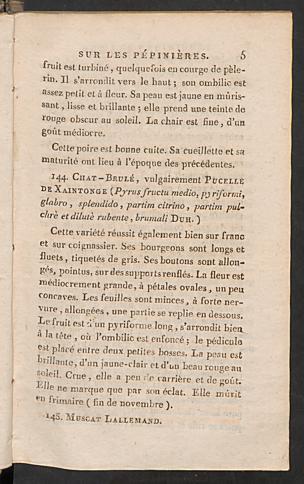 SUR LES PÉPINIÈRES. 5
fruit est turbiné, quelquefois en courge de pèle-
rin. Il s'arrondit vers le haut ; son ombilic est
assez petit et à fleur. Sa peau est jaune en mûris-
sant, lisse et brillante ; elle prend une teinte de
rouge obscur au soleil. La chair est fine, d'un
goût médiocre.
Cette poire est bonne cuite. Sa cueillette et sa
maturité ont lieu à l'époque des précédentes.
144. CHAT-BRULÉ, vulgairement PUCELLE
DE XAINTONGE (Pyrus fructu medio, pyriformi,
glabro, splendido, partim citrino, partim pul-
chrè et dilutè rubente, brumali DUH.)
Cette variété réussit également bien sur franc
et sur coignassier. Ses bourgeons sont longs et
fluets, tiquetés de gris. Ses boutons sont allon-
gés, pointus, sur des supports renflés. La fleur est
médiocrement grande, à pétales ovales, un peu
concaves. Les feuilles sont minces, à forte ner-
vure, allongées, une partie se replie en dessous.
Le fruit est d'un pyriforme long, s'arrondit bien
à la tête, où l'ombilic est enfoncé ; le pédicule
est placé entre deux petites bosses. La peau est
brillante, d'un jaune-clair et d'un beau rouge au
soleil. Crue, elle a peu de carrière et de goût.
Elle ne marque que par son éclat. Elle mûrit
en frimaire (fin de novembre).
145. MUSCAT LALLEMAND.